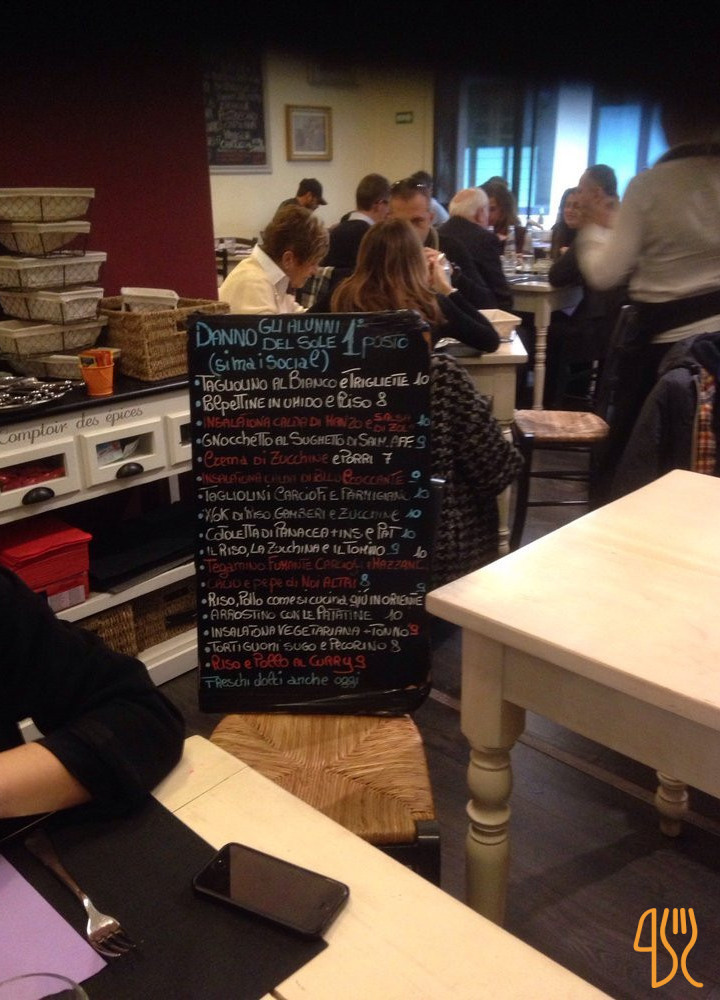 DANNO GLI ALUNNI DEL SOLE 1° POSTO
(si mai Social)
• TAGLIOLINO AL BIANCO e TRIGLIETTE 10
• POLPETTINE IN UMIDO e RISO 8
• INSALATONA CALDA DI MANZO e SALSA DI 10
• GNOCCHETTO AL SUGHETTO DI 9
• CREMA DI ZUCCHINE e PORRI 7
• INSALATONA CALDA DI POLLO CROCCANTE 9
• TAGLIOLINI CARCIOFI E PARMIGIANO 10
• WOK DI RISO GAMBERI e ZUCCHINE 10
• COTOLETTA DI PANACEA + INS e PAT 10
• IL RISO, LA ZUCCHINA e IL TOMINO 9
TEGAMINO FUMANTE CARCIOFI 10
CACIO e pepe di NOI ALTRI 8
• RISO, POLLO come si cucina GIÙ IN ORIENTE 9
• ARROSTINO CON LE PATATINE 10
• INSALATONA VEGETARIANA + TONNO 9
• TORTIGLIONI SUGO e PECORINO 8
• RISO e POLLO AL CURRY 9
FRESCHI dolci anche oggi
Comptoir des épices